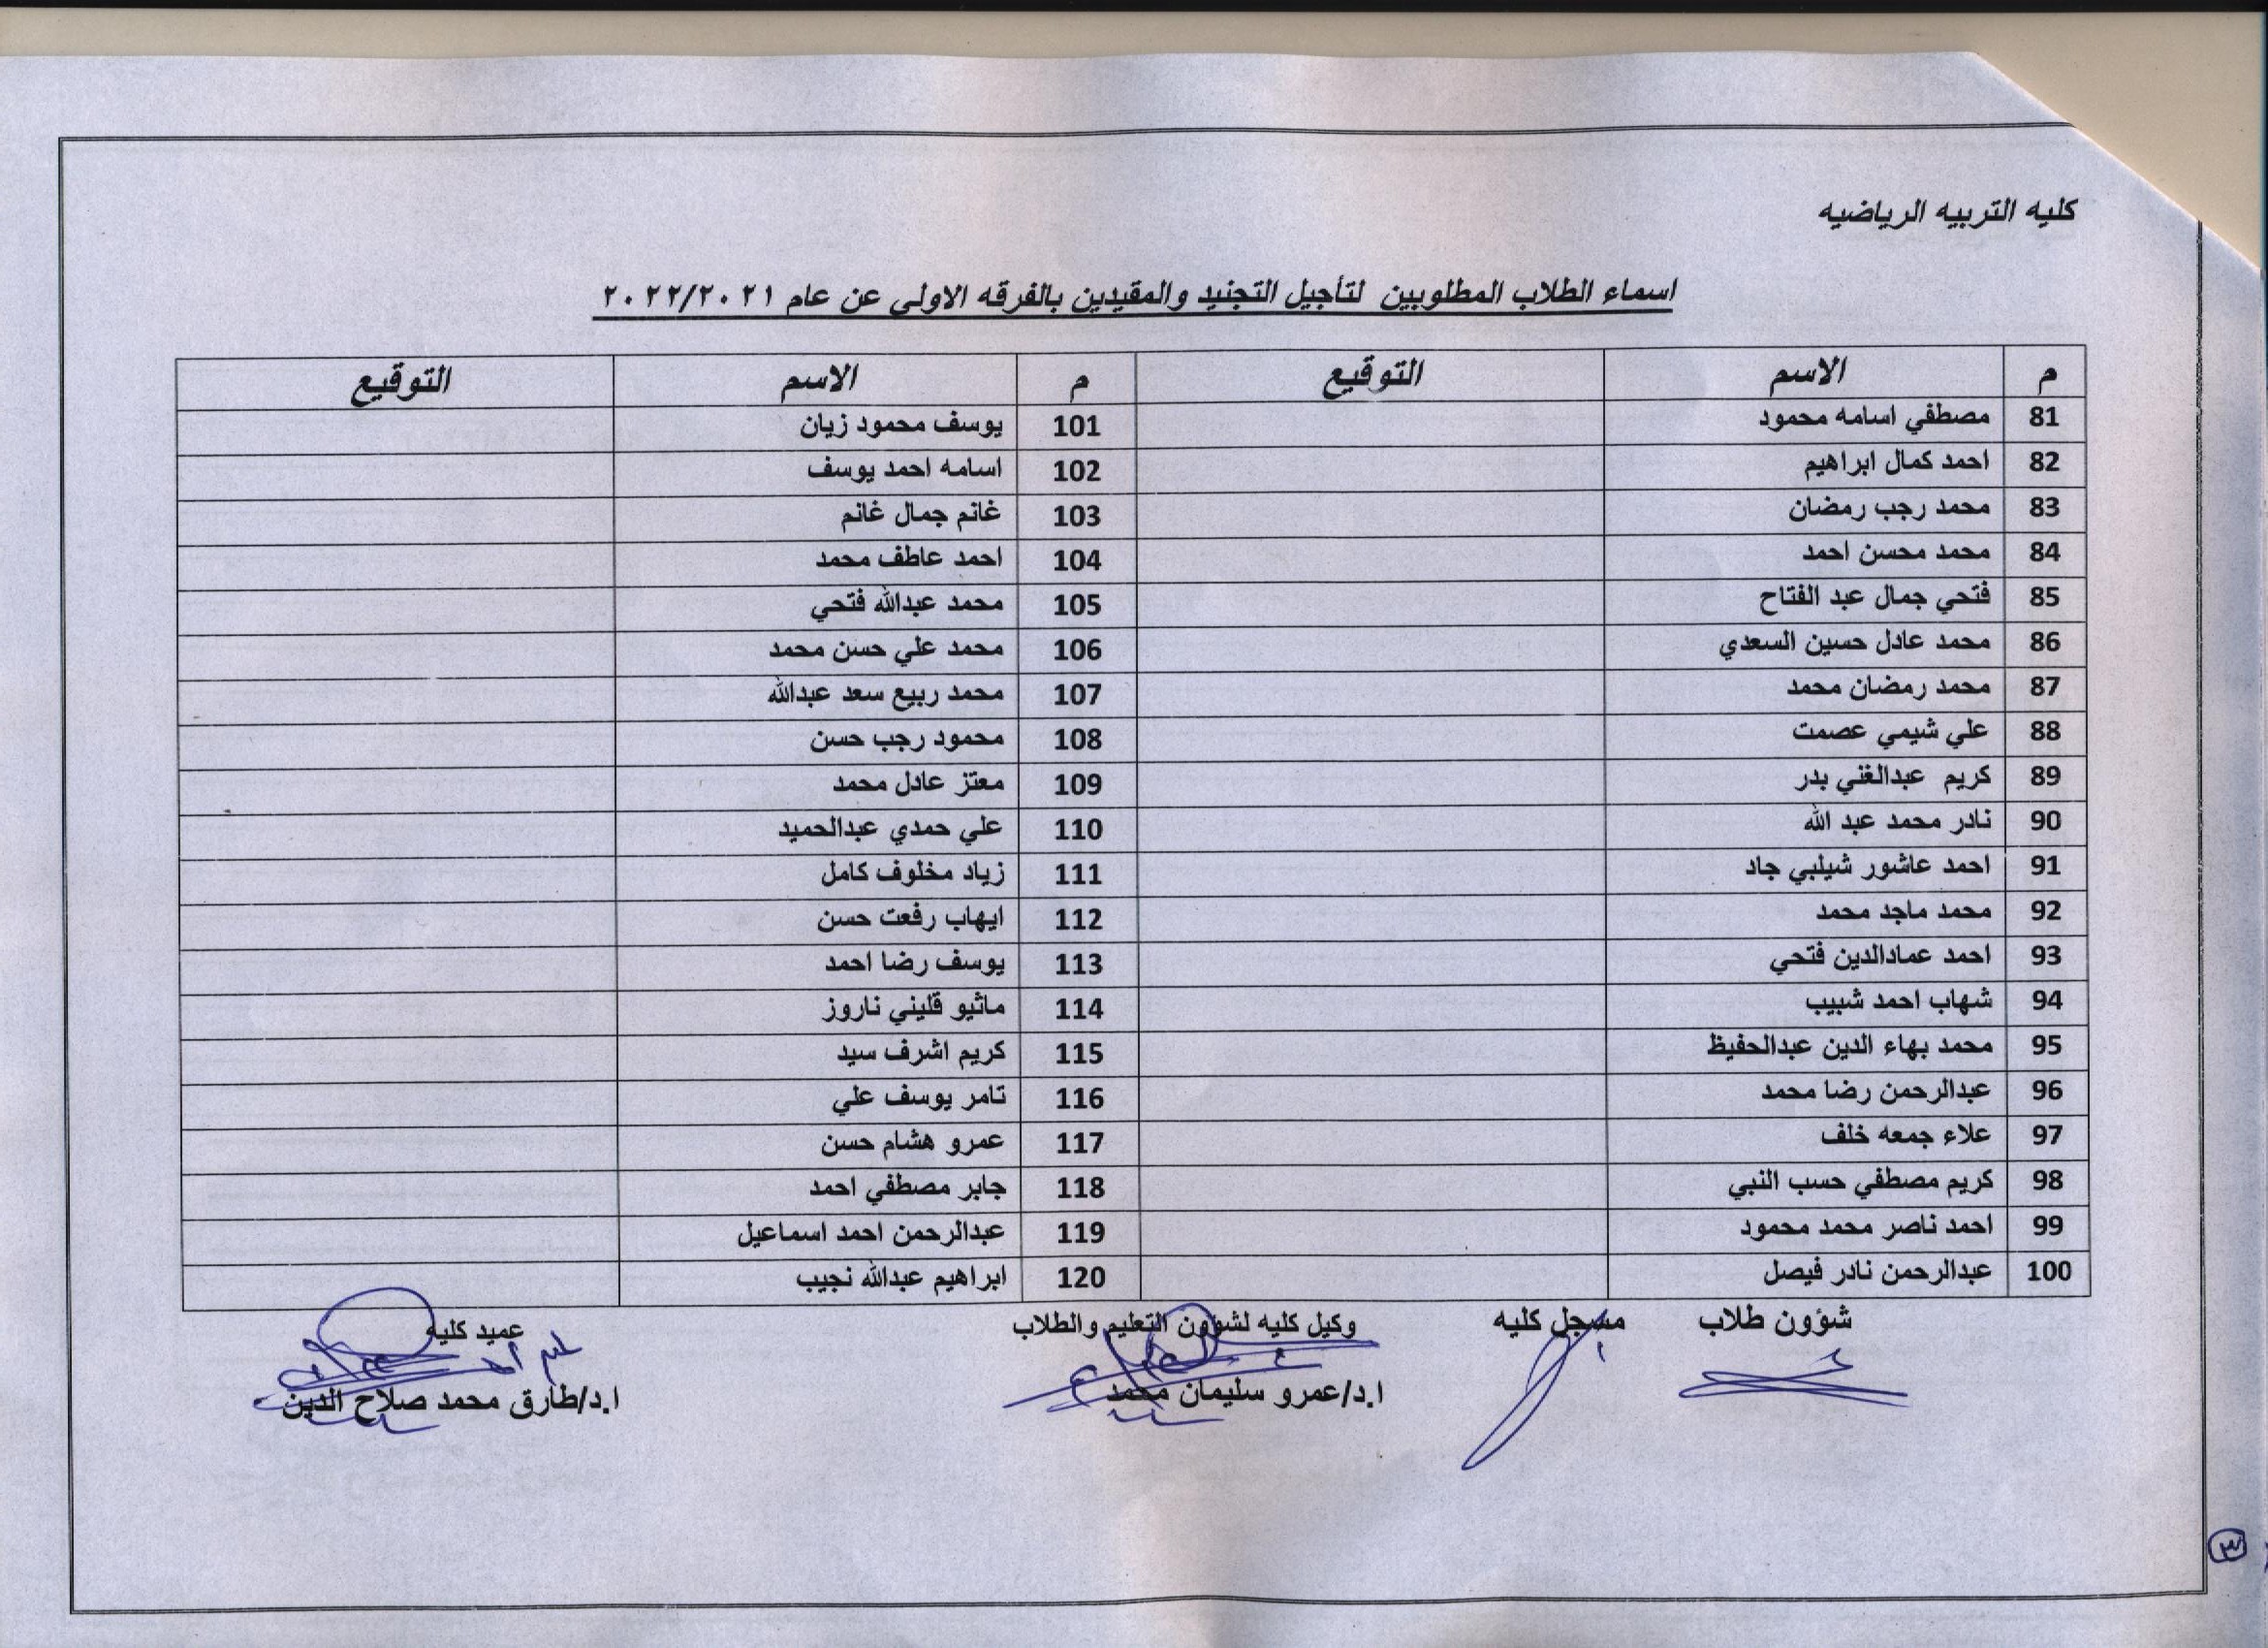 كليه التربيه الرياضيه
اسماء الطلاب المطلوبين لتأجيل التجنيد والمقيدين بالفرقه الاولى عن عام ٢٠٢٢/٢٠٢١
م الاسم التوقيع م الاسم التوقيع
81 مصطفي اسامه محمود 101 يوسف محمود زيان
82 احمد كمال ابراهيم 102 اسامه احمد يوسف
83 محمد رجب رمضان 103 غانم جمال غانم
84 محمد محسن احمد 104 احمد عاطف محمد
85 فتحي جمال عبد الفتاح 105 محمد عبدالله فتحي
86 محمد عادل حسين السعدي 106 محمد علي حسن محمد
87 محمد رمضان محمد 107 محمد ربيع سعد عبدالله
88 علي شيمي عصمت 108 محمود رجب حسن
89 كريم عبدالغني بدر 109 معتز عادل محمد
90 نادر محمد عبد الله 110 علي حمدي عبدالحميد
91 احمد عاشور شيلبي جاد 111 زياد مخلوف كامل
92 محمد ماجد محمد 112 ايهاب رفعت حسن
93 احمد عمادالدين فتحي 113 يوسف رضا احمد
94 شهاب احمد شبيب 114 ماثيو قليني ناروز
95 محمد بهاء الدين عبدالحفيظ 115 كريم اشرف سيد
96 عبدالرحمن رضا محمد 116 تامر يوسف علي
97 علاء جمعه خلف 117 عمرو هشام حسن
98 كريم مصطفي حسب النبي 118 جابر مصطفي احمد
99 احمد ناصر محمد محمود 119 عبدالرحمن احمد اسماعيل
100 عبدالرحمن نادر فيصل 120 ابراهيم عبدالله نجيب
شؤون طلاب مسجل كليه وكيل كليه لشؤون التعليم والطلاب عميد كليه
ا.د/عمرو سليمان محمد ا.د/طارق محمد صلاح الدين
٣